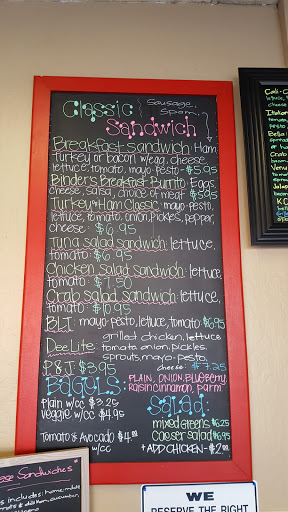 Classic
Sandwich
{ Sausage,
Spam, }
Breakfast sandwich: Ham
Turkey or bacon w/egg, cheese
lettuce, tomato, mayo-pesto - $5.95
Binder's Breakfast Burrito: Eggs
cheese, salsa, choice of meat $5.95
Turkey or Ham Classic: mayo, pesto,
lettuce, tomato, onion, pickles, pepper,
cheese: $6.95
Tuna salad sandwich: lettuce,
tomato: $6.95
Chicken salad sandwich: lettuce,
tomato: $7.50
Crab salad sandwich: lettuce,
tomato: $10.95
BLT: mayo-pesto, lettuce, tomato $6.95
DeeLite: grilled chicken, lettuce
tomato, onion, pickles,
sprouts, mayo-pesto,
cheese: $7.25
P&J $3.95
BAGELS: PLAIN, ONION, BLUEBERRY,
raisin cinnamon, parm
Plain w/cc $3.25
Veggie w/cc $4.95
Tomato & Avocado $4.
w/cc
Salad
mixed greens $6.25
caeser salad $6.25
+ADD CHICKEN - $2.
Cali-C
Italian
Bella
Crab
Venu
Jala
WE
RESERVE THE RIGHT
ese Sandwiches
includes: